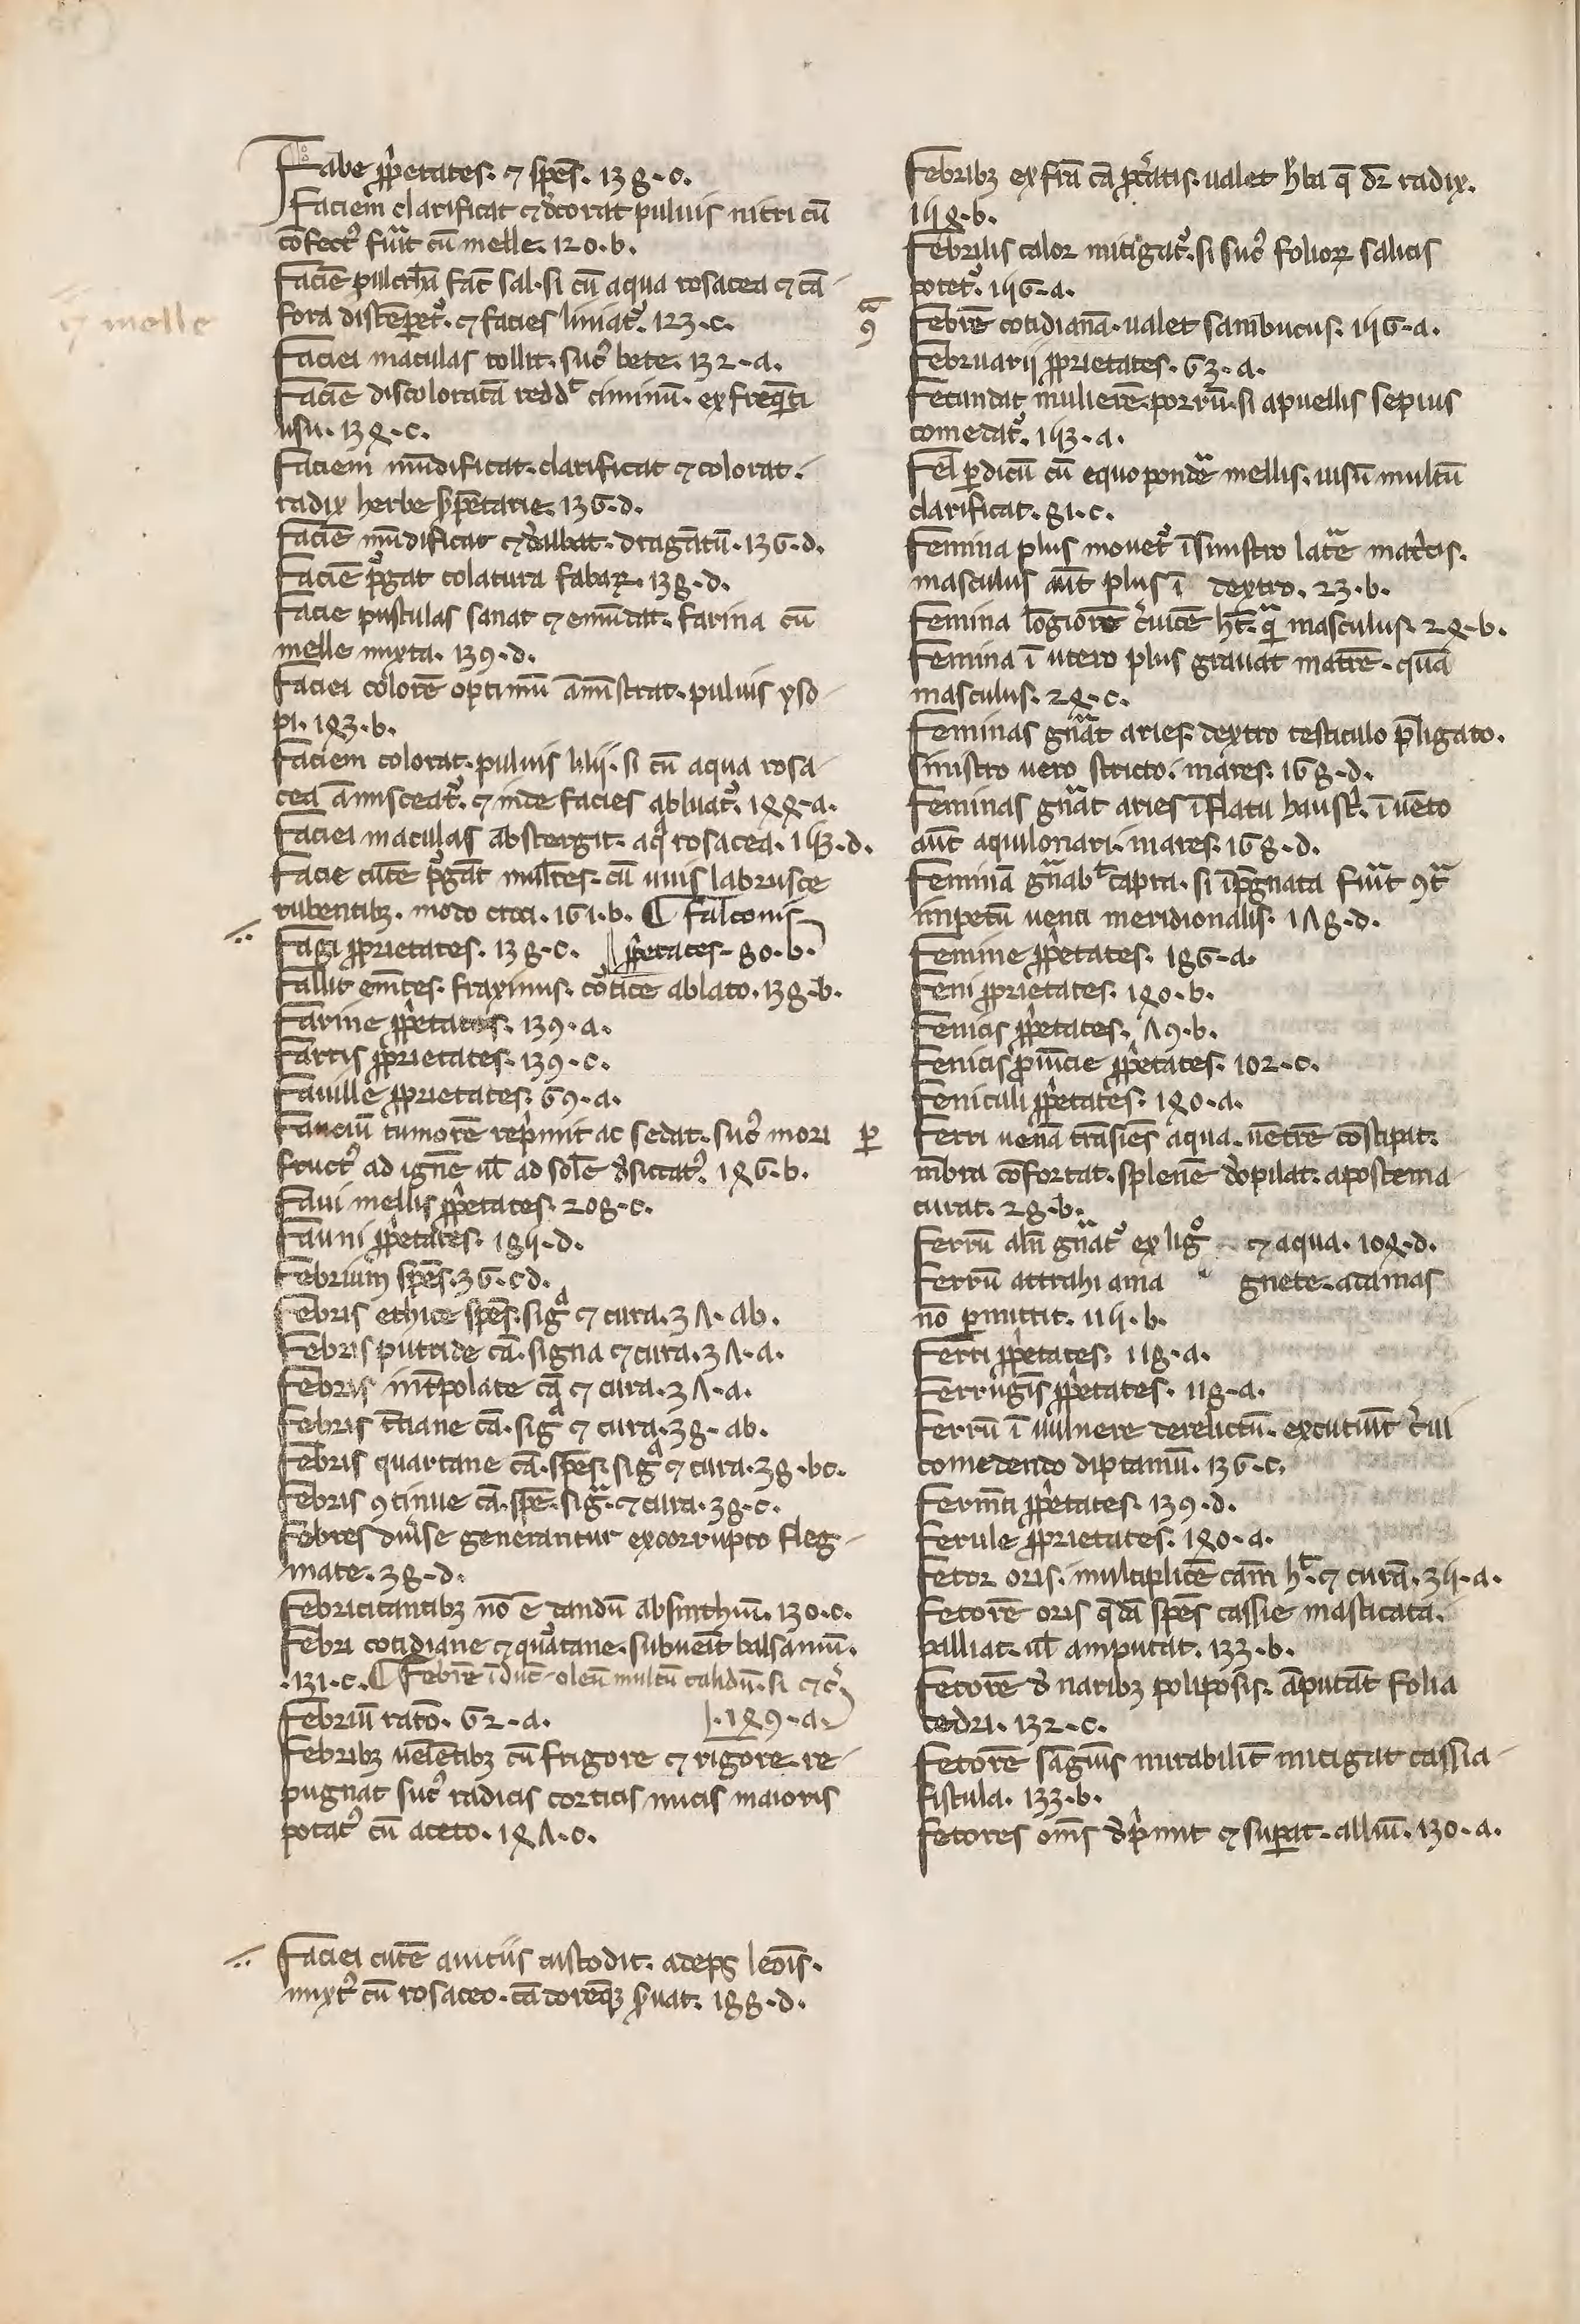 Fabe ꝓp̍etates. ⁊ sp̄es. 138.c.
Faciem clarificat ⁊ dec̍orat puluis nitri cū
ꝯfect᷒ fuīt cū melle. 120.b.
Faciē pulcrā fac̄ sal. si cū aqua rosacea ⁊ cā-
fora distēꝑet᷒. ⁊ facies liniat᷒. 123.c.
⁊ melle
Faciei maculas tollit. suc᷒ bete. 132.a.
Faciē discoloratā redd̄t ciminū. ex freq̄nti
usu. 134.c.
Faciem mūdificat. clarificat ⁊ colorat.
radix herbe s̍pētarie. 136.d.
Faciē mūdificat ⁊ dealbat. dragātū. 136.d.
Faciē p᷒gat colatura fabaꝝ. 138.d.
Facie pustulas sanat ⁊ emūdat. farina cū
melle mixta. 139.d.
Faciei colorē optimū āmīstrat. puluis yso-
pi. 143.b.
Faciem colorat. puluis lilii. si cū aqua rosa-
cea āmisceat᷒. ⁊ inde facies abluat᷒. 144.a.
Faciei maculas abstergit. aq̄ rosacea. 153.d.
Facie cutē p᷒gāt mul̄tes. cū uuis labrusce
rubentibꝫ. modo croci. 161.b. ¶ falconis
Fagi ꝓprietates. 138.c. ꝓp̍etates. 80.b.
Fallit em̄tes. fraxinus. cōtice ablato. 138.b.
Farine ꝓp̍etates. 139.a.
Farris ꝓprietates. 139.c.
Fauille ꝓprietates. 69.a.
Fauciū tumorē rep̍mit ac sedat. suc᷒ mori
fruct᷒ ad ignē ul̄ ad solē d̍siccat᷒. 146.b.
Faui mellis ꝓp̍etates. 208.c.
Fauni ꝓp̍etates. 185.d.
Febrium sp̄es. 36.cd.
Febris ethice sp̄es. sigᵃ ⁊ cura. 37.ab.
Febris putride cā. signa ⁊ cura. 37.a.
Febris int̄polate cā ⁊ cura. 37.a.
Febris t̄tiane cā. sigᵃ ⁊ cura. 38.ab.
Febris quartane cā. sp̄es. sigᵃ ⁊ cura. 38.bc.
Febris ꝯtinue cā. sp̄e. sigᵃ. ⁊ cura. 38.c.
Febres diu̍se generantur ex corrupto fleg-
mate. 38.d.
Febricitantibꝫ nō ē dandū absinthiū. 130.c.
Febri cotidiane ⁊ quātane. subueīt balsamū.
131.c. ¶ Febrē īduc̄ oleū multū calidū. si ⁊c̍.
Febriū ratō. 62.a. 149.a.
Febribꝫ uēiētibꝫ cū frigore ⁊ rigore. re-
pugnat suc᷒ radicis corticis nucis maioris
potat᷒ cū aceto. 147.c.
Faciei cutē a uiciis custodit. adeps leōis.
mixt᷒ cū rosaceo. cādoremqꝫ s̍uat. 188.d.
Febribꝫ ex fr̄a cā p̄c̍atis. ualet h̍ba q̄ dr̄ radix.
154.b.
Febrilis calor mitigat᷒. si suc᷒ folioꝝ salicis
potet᷒. 156.a.
Febrē cotidianā. ualet sambucus. 156.a.
Februarii ꝓprietates. 63.a.
Fecundat mulierē. porrū. si a puellis sepius
comedat᷒. 153.a.
Fel ꝑdicū cū equo pondᵃe mellis. uisū multū
clarificat. 81.c.
Femina plus mouet᷒ ī sinistro latᵃe mat̍cis.
masculus aūt plus ī dextro. 23.b.
Femina lōgiorē c̍uicē h̄t. qᵃ masculus. 24.b.
Femina ī utero plus grauat matrē. quā
masculus. 24.c.
Feminas gn̄at aries. dextro testiculo p̄ligato.
sinistro uero stricto. mares. 168.d.
Feminas gn̄at aries īflatu haust̍. ī uēto
aūt aquilonari. mares. 168.d.
Feminā gn̄abᵗ capra. si īp̄gnata fuīt ꝯtᵃ
impetū uenti meridionalis. 178.d.
Femine ꝓp̍etates. 186.a.
Feni ꝓprietates. 140.b.
Fenicis ꝓp̍etates. 79.b.
Fenicis ꝓuīcie ꝓp̍etates. 102.c.
Feniculi ꝓp̍etates. 140.a.
Ferri uenā trāsiēs aqua. uētrē cōstipat.
mēbra cōfortat. splenē d̍opilat. apostema
curat. 28.b.
Ferrū aln̄ gn̄at᷒ ex lig° ⁊ aqua. 104.d.
Ferrū attrahi a ma gnete. adamas
nō ꝑmittit. 115.b.
Ferri ꝓp̍etates. 118.a.
Ferrugīs ꝓp̍etates. 118.a.
Ferrū ī uulnere derelictū. excutiūt c̍ui
comedendo diptamū. 136.c.
Ferm̄ti ꝓp̍etates. 139.d.
Ferule ꝓprietates. 140.a.
Fetor oris. multiplicē cām hᵗ. ⁊ curā. 35.a.
Fetorē oris q̄dā sp̄es cassie masticata.
palliat. ul̄ amputat. 133.b.
Fetorē d̍ naribꝫ poliposis. āputāt folia
cedri. 132.c.
Fetorē sāguīs mirabilit̄ mitigat cassia-
fistula. 133.b.
Fetores om̄s d̍p̍mit ⁊ suꝑat. alliū. 130.a.